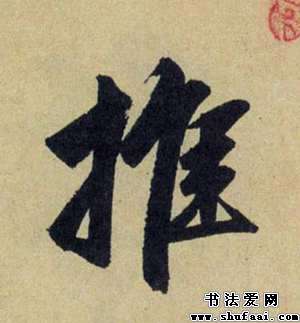 推
书法爱网
www.shufaai.com